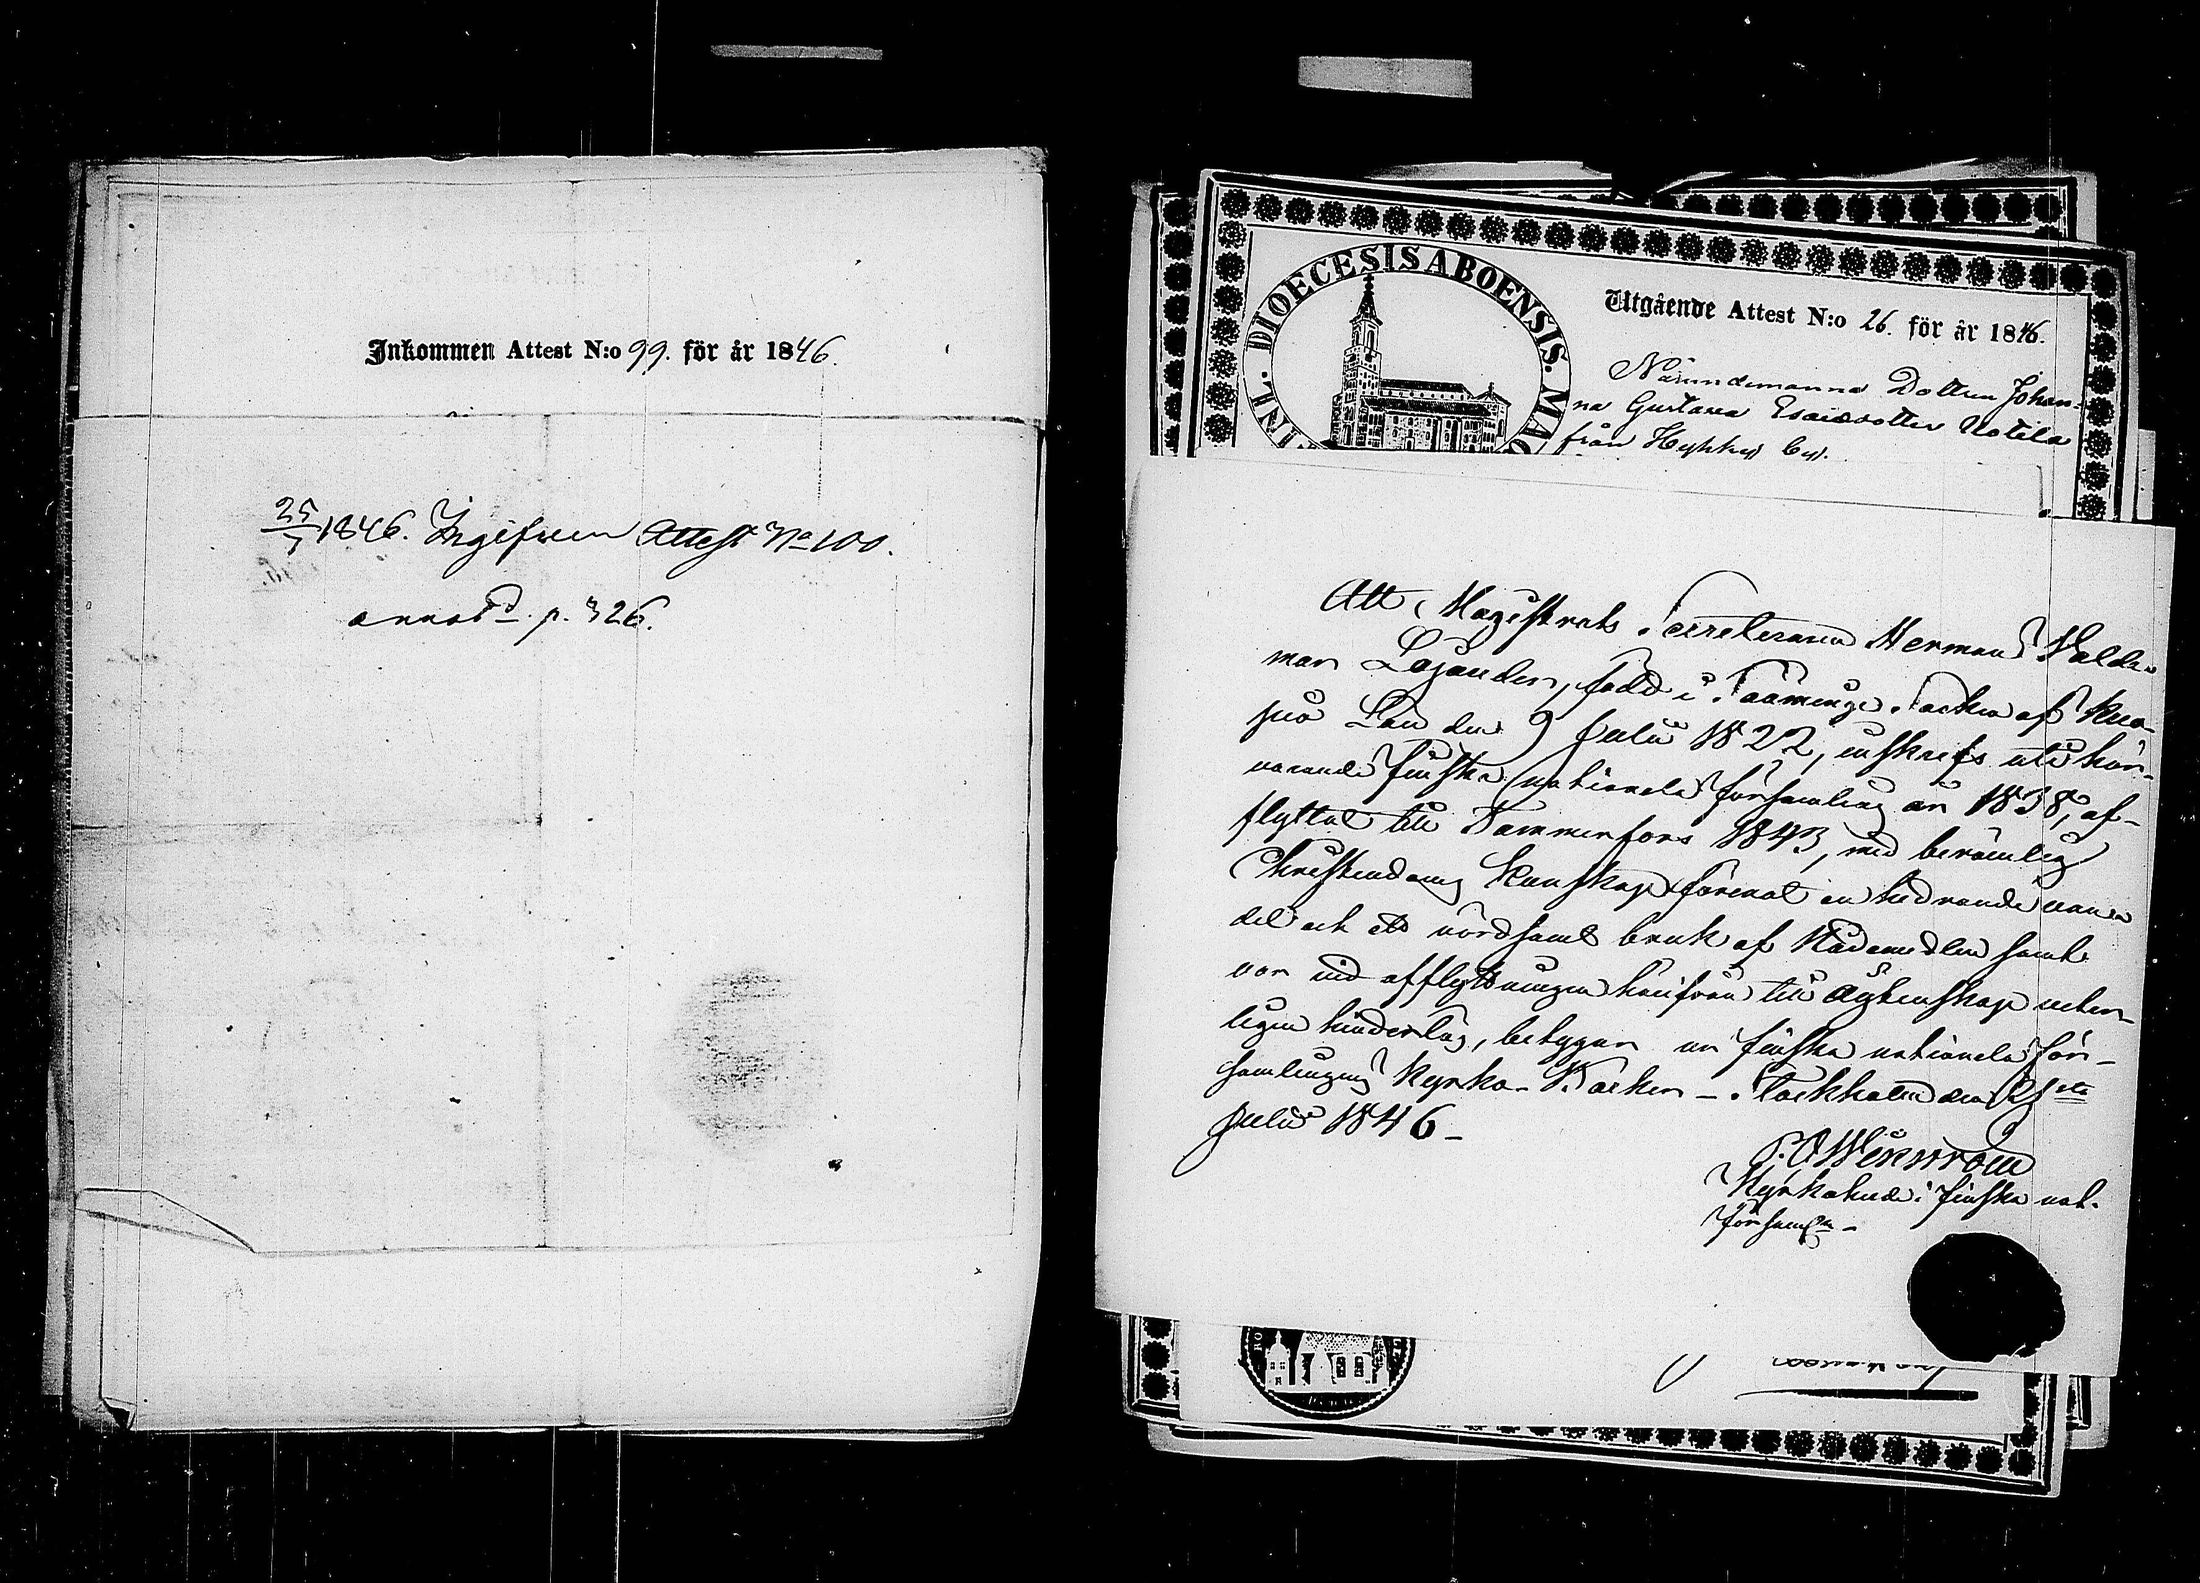 Inkommen Attest N:o 99. för år 1846.
25/7 1846. Ingifven Attest No 100.
annot:d p. 326.
FINL. DIOECESIS ABOENSIS. MAG
Utgående Attest N:o 26. för år 1846.
Nämndemanna Dottren Johan-
na Gustava Esaiædotter Uotila
från Hykkyl by.
Att Magistrats Secreteraren Herman Valde-
mar Lojander, född i Sääminge Socken af Kuo-
pio Län den 9 Julii 1822, inskrefs uti här-
varande finska nationela församling år 1838, af-
flyttat till Tammerfors 1843, med berömlig
Christendoms Kunskap förenat en hedrande van-
del och ett vördsamt bruk af Nådemedlen samt
var vid afflyttningen härifrån till Äktenskap veter-
ligen hinderlös, betygar ur finska nationela för-
samlingens Kyrko-Böcker – Stockholm den 21sta
Julii 1846 –
Kyrkoherde i finska nat.
församln –